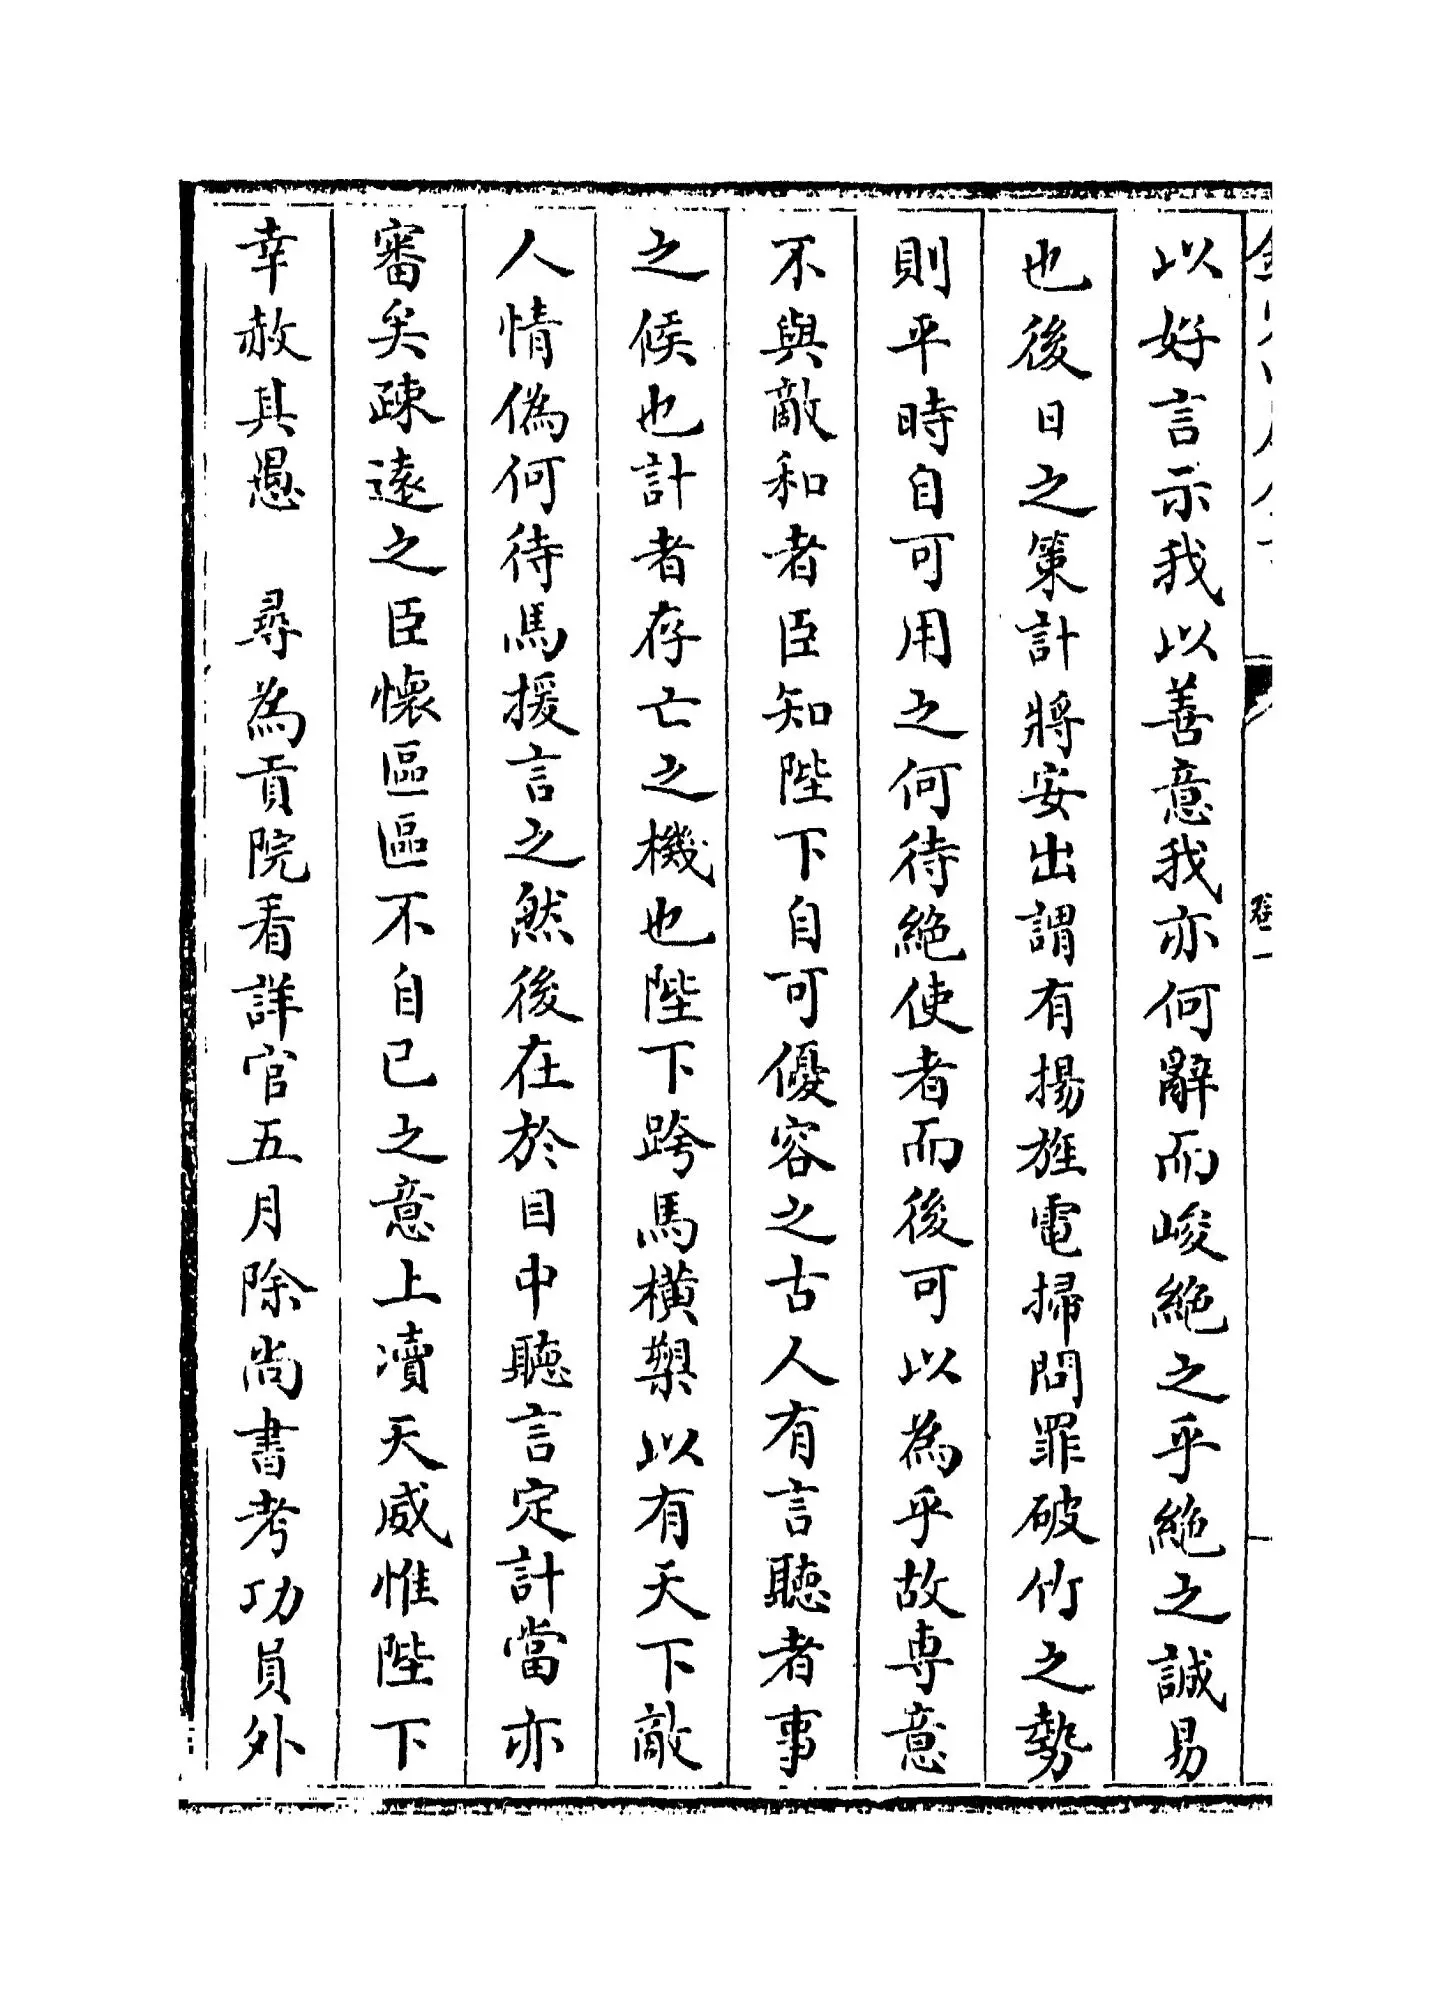 以好言示我以善意我亦何辭而峻絶之乎絶之誠易
也後日之策計將安出謂有揚旌電掃問罪破竹之勢
則平時自可用之何待絶使者而後可以為乎故専意
不與敵和者臣知陛下自可優容之古人有言聽者事
之候也計者存亡之機也陛下跨馬橫槊以有天下敵
人情偽何待馬援言之然後在於目中聽言定計當亦
審矣疎遠之臣懷區區不自已之意上凟天威惟陛下
幸赦其愚 尋為貢院看詳官五月除尚書考功員外